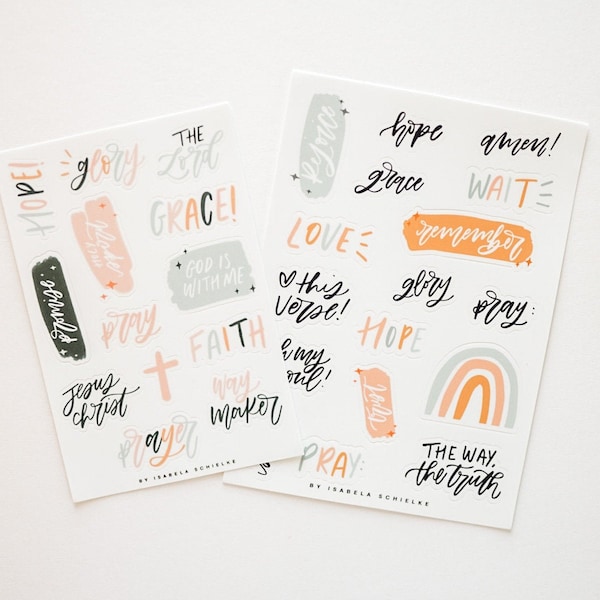 HOPE!
glory
THE
Lord
GRACE!
promise.
GOD IS
WITH ME
pray
FAITH
Jesus
Christ
way
maker
prayer
BY ISABELA SCHIELKE
Rejoice
hope
amen!
grace
WAIT
LOVE
remember
this
verse!
glory
pray:
HOPE
my
soul!
PRAY:
THE WAY,
the truth
BY ISABELA SCHIELKE